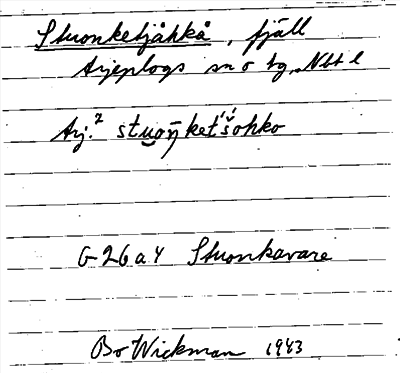 Stuonketjåhkå, fjäll
Arjeplogs sn o tg, Nbt l
Arj.² stuoŋ̄ket´š́ohko
G 26 a 4 Stuonkavare
Bo Wickman 1943